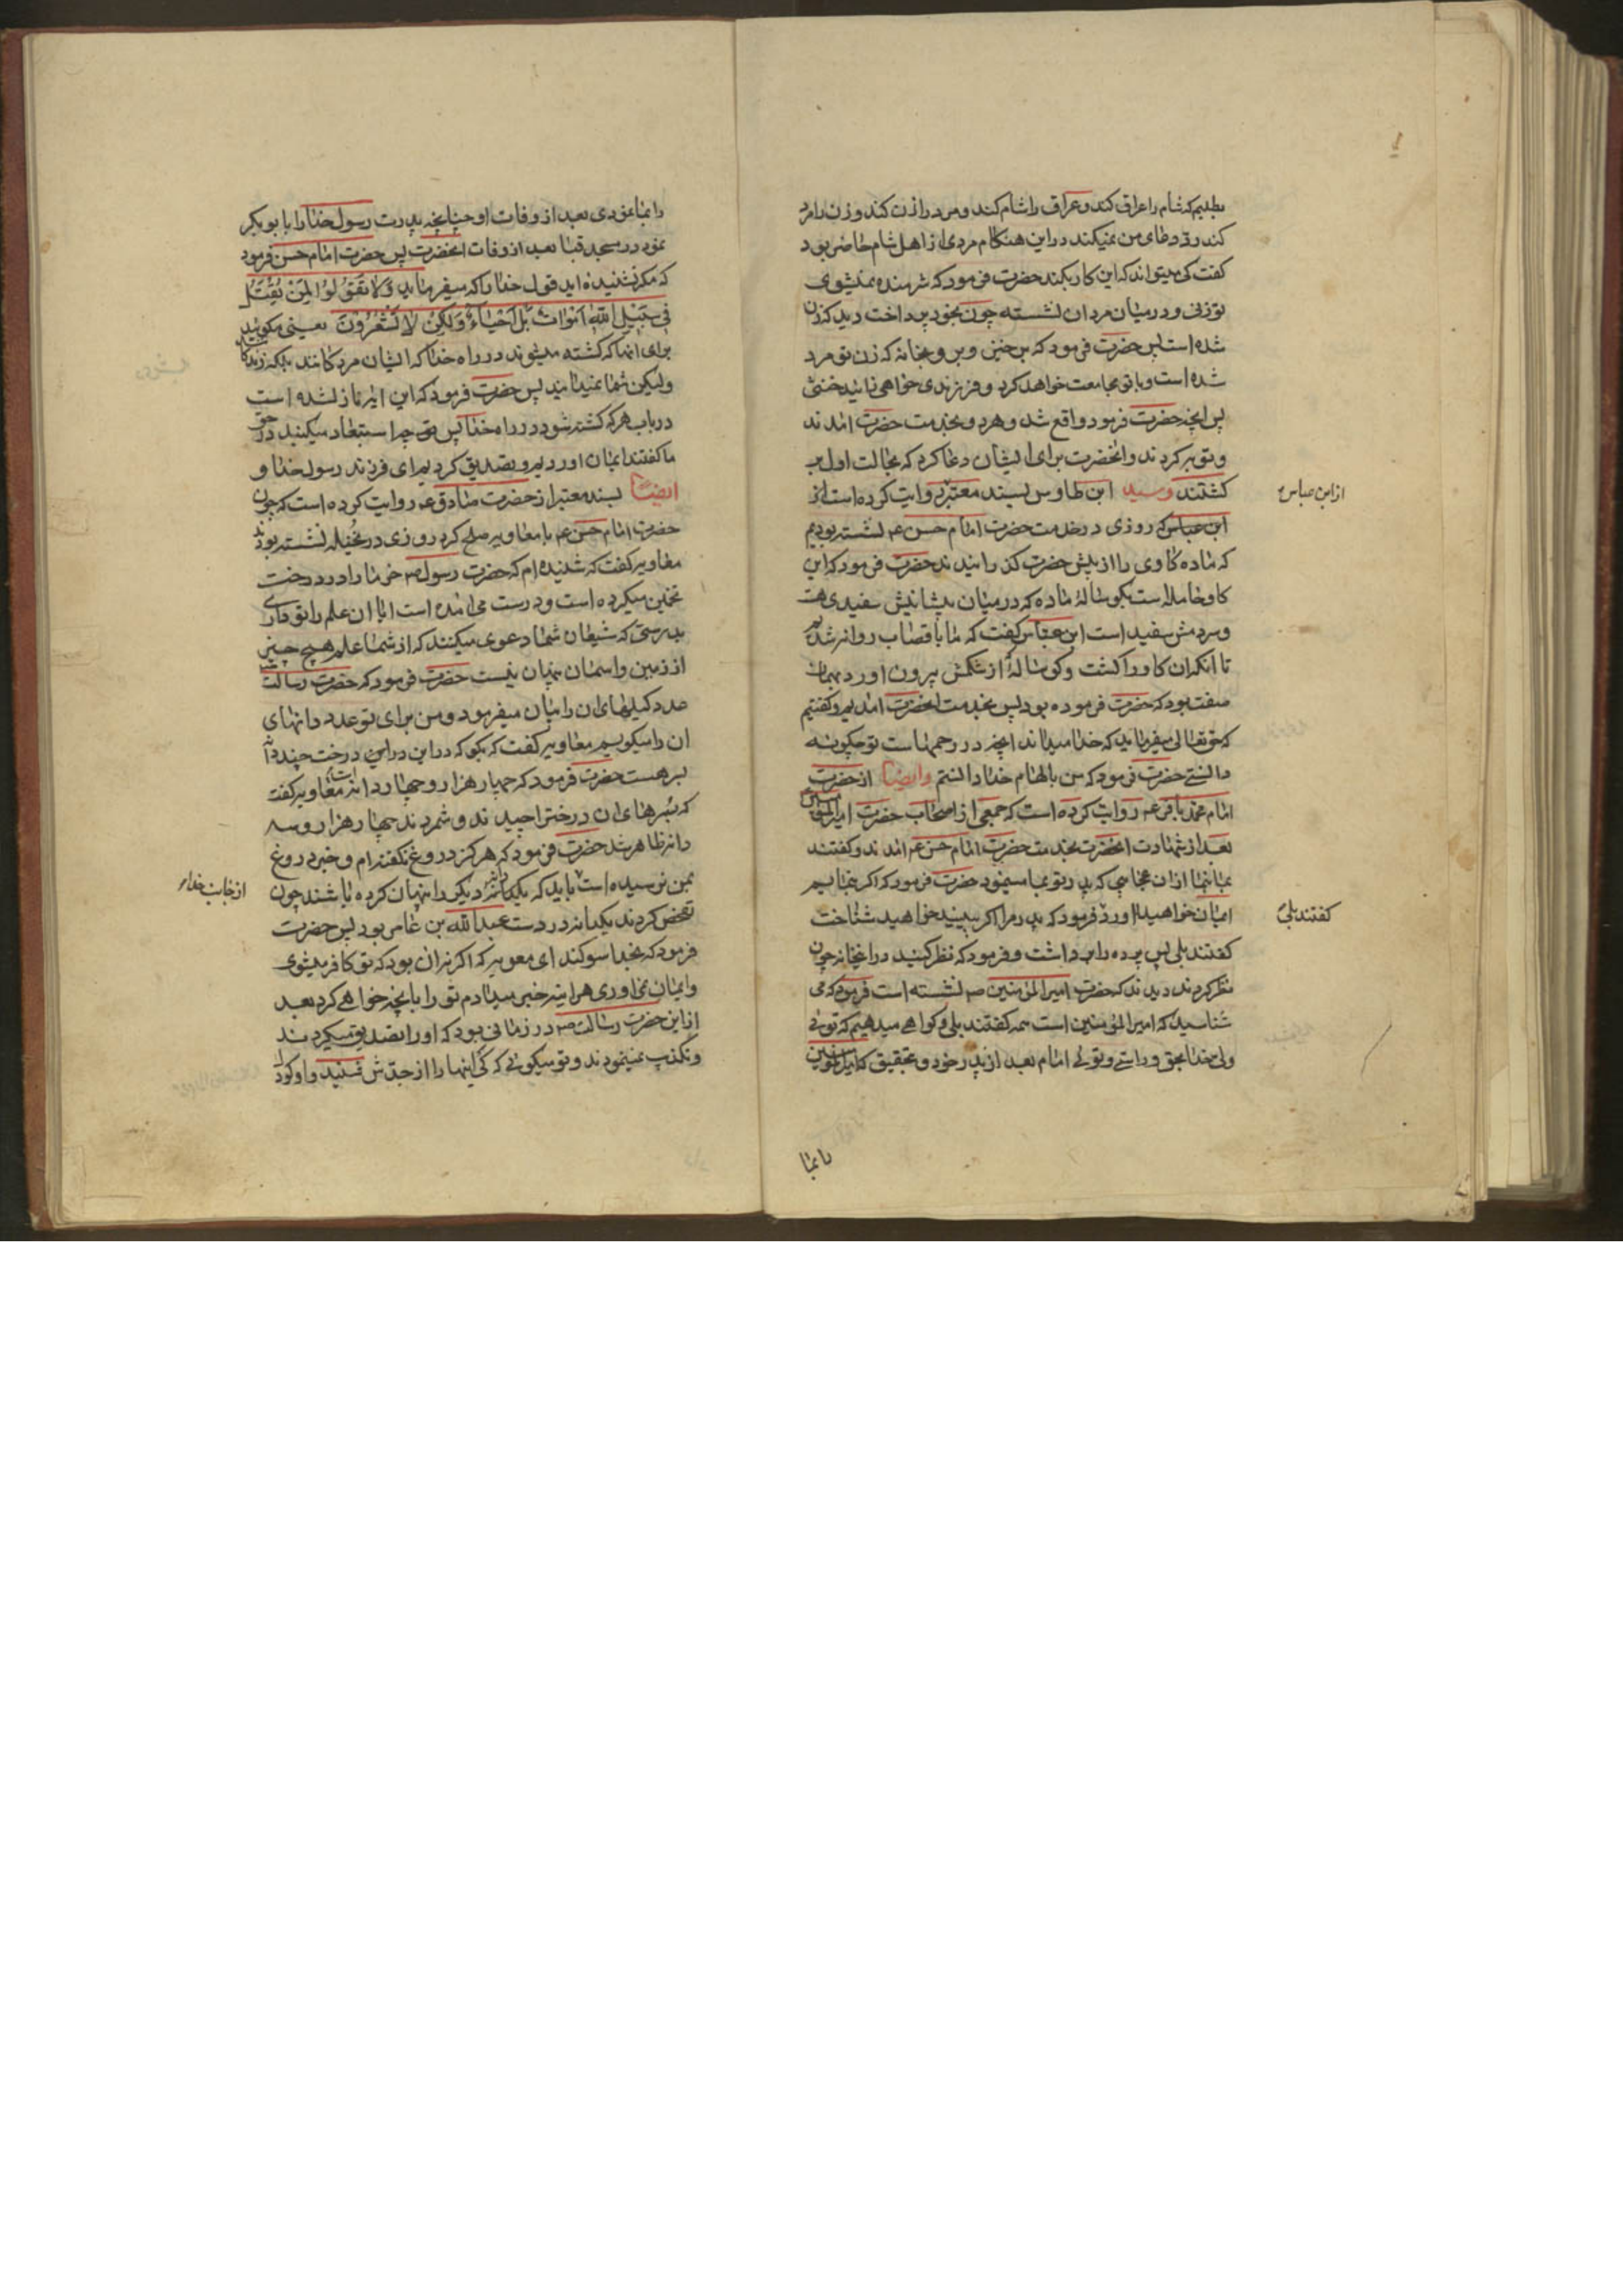 بطلبم که شام را عراق کند و عراق را شام کند و مرد را زن کند و زن را مرد
کند رد دعای من نمیکند در این هنکام مردی از اهل شام حاضر بود
کفت کی میتواند که این کار بکند حضرت فرمود که شرمنده نمیشوی
تو زنی و در میان مردان نشسته چون بخود پرداخت دید که زن
شده است پس حضرت فرمود که برخیز و برو بخانه که زن تو مرد
شده است و با تو مجامعت خواهد کرد و فرزندی خواهی زائید خنثی
پس انچه حضرت فرمود واقع شد و هر دو بخدمت حضرت امدند
و توبه کردند و انحضرت برای ایشان دعا کرد که بحالت اول بر
کشتند و سید ابن طاوس بسند معتبر روایت کرده است از
ابن عباس که روزی در خدمت حضرت امام حسن ع نشسته بودیم
که ماده کاوی را از پیش حضرت کذرانیدند حضرت فرمود که این
کاو حامله است بکوسالهٔ ماده که در میان پیشانیش سفیدی هست
و سر دمش سفید است ابن عباس کفت که ما با قصاب روانه شدیم
تا انکه ان کاو را کشت و کوسالهٔ از شکمش بیرون اورد بهمان
صفت بود که حضرت فرموده بود پس بخدمت انحضرت امدیم و کفتیم
که حق تعالی میفرماید که خدا میداند انچه در رحمهاست تو چکونه
دانستی حضرت فرمود که من بالهام خدا دانستم و ایضا از حضرت
امام محمد باقر ع روایت کرده است که جمعی از اصحاب حضرت امیر المؤمنین
بعد از شهادت انحضرت بخدمت حضرت امام حسن ع امدند و کفتند
بما بنما از ان عجایبی که پدر تو بما مینمود حضرت فرمود که اکر بنمایم
ایمان خواهید اورد فرمود که پدرم را اکر ببینید خواهید شناخت
کفتند بلی پس پرده را برداشت و فرمود که نظر کنید در این خانه چون
نظر کردند دیدند که حضرت امیر المؤمنین ص نشسته است فرمود که می
شناسید که امیر المؤمنین است همه کفتند بلی و کواهی میدهیم که توئی
ولی خدا بحق و راستی و توئی امام بعد از پدر خود و بتحقیق که امیر المؤمنین
از ابن عباس
کفتند بلی
را بما
را بما نمودی بعد از وفات او چنانچه پدرت رسول خدا را بابو بکر
نمود در مسجد قبا بعد از وفات انحضرت پس حضرت امام حسن فرمود
که مکر نشنیده اید قول خدا را که میفرماید وَلا تَقُولُوا لِمَنْ یُقْتَلُ
فِی سَبِیلِ اللّهِ اَمْوَاتٌ بَلْ اَحْیَاءٌ وَلَکِنْ لا تَشْعُرُونَ یعنی مکوئید
برای انها که کشته میشوند در راه خدا که ایشان مردکانند بلکه زندکانند
ولیکن شما نمیدانید پس حضرت فرمود که این ایه نازل شده است
در باب هر که کشته شود در راه خدا پس چرا استبعاد میکنید در حق
ما کفتند ایمان اوردیم و تصدیق کردیم ای فرزند رسول خدا و
ایضا بسند معتبر از حضرت صادق ع روایت کرده است که چون
حضرت امام حسن ع با معاویه صلح کرد روزی در نخیله نشسته بودند
معاویه کفت که شنیده ام که حضرت رسول ص خرما را در درخت
تخمین میکرده است و درست می امده است ایا ان علم را تو داری
بدرستی که شیعیان شما دعوی میکنند که از شما علم هیچ چیز
از زمین و اسمان پنهان نیست حضرت فرمود که حضرت رسالت
عدد کیلهای ان را بیان میفرمود و من برای تو عدد دانهای
ان را میکویم معاویه کفت که بکو که در این درخت چند دانه
بسر هست حضرت فرمود که چهار هزار و چهار دانه است معاویه کفت
که بسرهای ان درخت را چیدند و شمردند چهار هزار و سه
دانه ظاهر شد حضرت فرمود که هرکز دروغ نکفته ام و خبر دروغ
بمن نرسیده است باید که یکدانه دیکر را پنهان کرده باشند چون
تفحص کردند یکدانه در دست عبد الله بن عامر بود پس حضرت
فرمود که بخدا سوکند ای معویه که اکر نه ان بود که تو کافر میشوی
و ایمان نمی اوری هر اینه خبر میدادم تو را بانچه خواهی کرد بعد
از این حضرت رسالت ص در زمانی بود که او را تصدیق میکردند
و تکذیب نمینمودند و تو میکوئی که کی اینها را از جدش شنید و او کودک
از جانب خداء